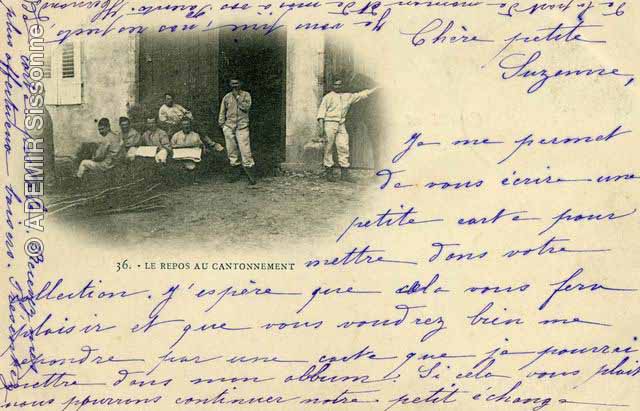 Chère petite
Suzanne,
Je me permet
de vous écrire une
petite carte pour
36. - LE REPOS AU CANTONNEMENT
mettre dans votre
collection. J'espère que cela vous fera
plaisir et que vous voudrez bien me
repondre par une carte que je pourrai
mettre dans mon album. Si cela vous plait
nous pourrons continuer notre petit échange
plus affectueux baisers.
© ADEMIR Sissonne